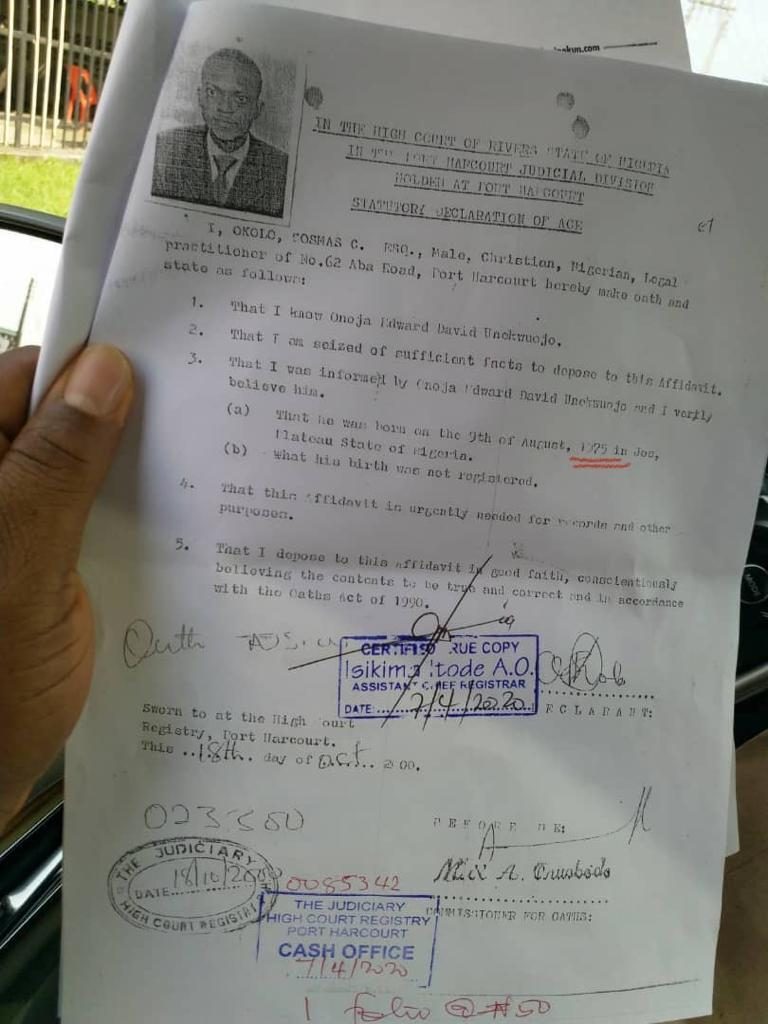 IN THE HIGH COURT OF RIVERS STATE OF NIGERIA
IN THE PORT HARCOURT JUDICIAL DIVISION
HOLDEN AT PORT HARCOURT
STATUTORY DECLARATION OF AGE
I, OKOLO, COSMAS C. ESQ., Male, Christian, Nigerian, Legal
practitioner of No.62 Aba Road, Port Harcourt hereby make oath and
state as follows:
1. That I know Onoja Edward David Unekwuojo.
2. That I am seized of sufficient facts to depose to this Affidavit.
3. That I was informed by Onoja Edward David Unekwuojo and I verily
believe him.
(a) That he was born on the 9th of August, 1975 in Jos,
Plateau State of Nigeria.
(b) What his birth was not registered.
4. That this Affidavit is urgently needed for records and other
purposes.
5. That I depose to this affidavit in good faith, conscientiously
believing the contents to be true and correct and in accordance
with the Oaths Act of 1990.
CERTIFIED TRUE COPY
Isikima Itode A.O.
ASSISTANT CHIEF REGISTRAR
DATE: 7/4/2020
DECLARANT:
Sworn to at the High Court
Registry, Port Harcourt.
This ..18th.. day of Oct.. 2000.
023500
BEFORE ME:
COMMISSIONER FOR OATHS:
THE JUDICIARY
DATE 18/10/2000
HIGH COURT REGISTRY
0085342
THE JUDICIARY
HIGH COURT REGISTRY
PORT HARCOURT
CASH OFFICE
7/4/2020
1 folio @ ₦50